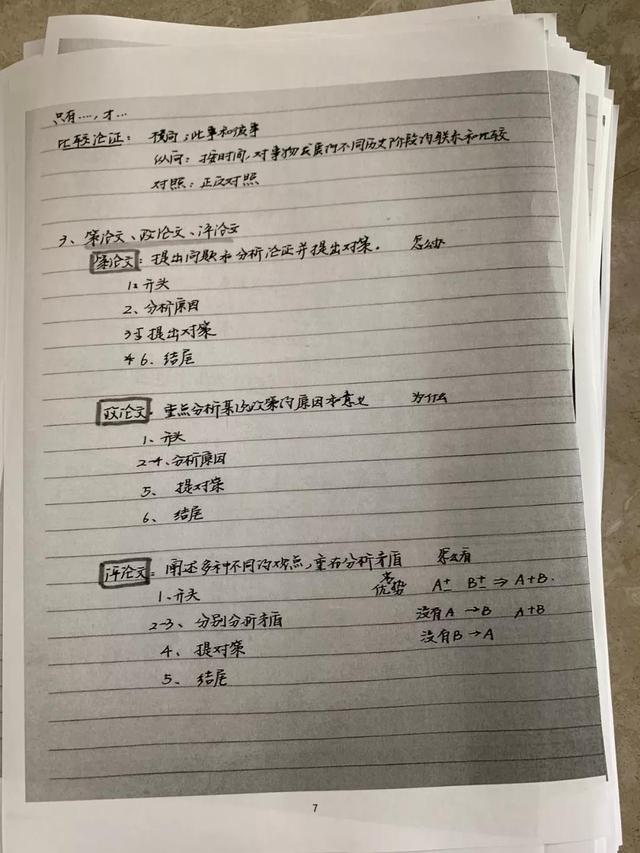 只有……，才…
比较论证： 横向：此事和彼事
纵向：按时间，对事物发展的不同历史阶段的联系和比较
对照：正反对照
3、策论文、政论文、评论文
策论文：提出问题 分析论证并提出对策。 怎么办
1 开头
2、分析原因
3-5 提出对策
6、结尾
政论文：重点分析某项政策的原因和意义 为什么
1、开头
2-4、分析原因
5、提对策
6、结尾
评论文：阐述多种不同的观点，重在分析矛盾 怎么看
1、开头 优势 A+ B+ ⇒ A+B.
2-3、分别分析矛盾 没有A → B A+B
4、提对策 没有B → A
5、结尾
7